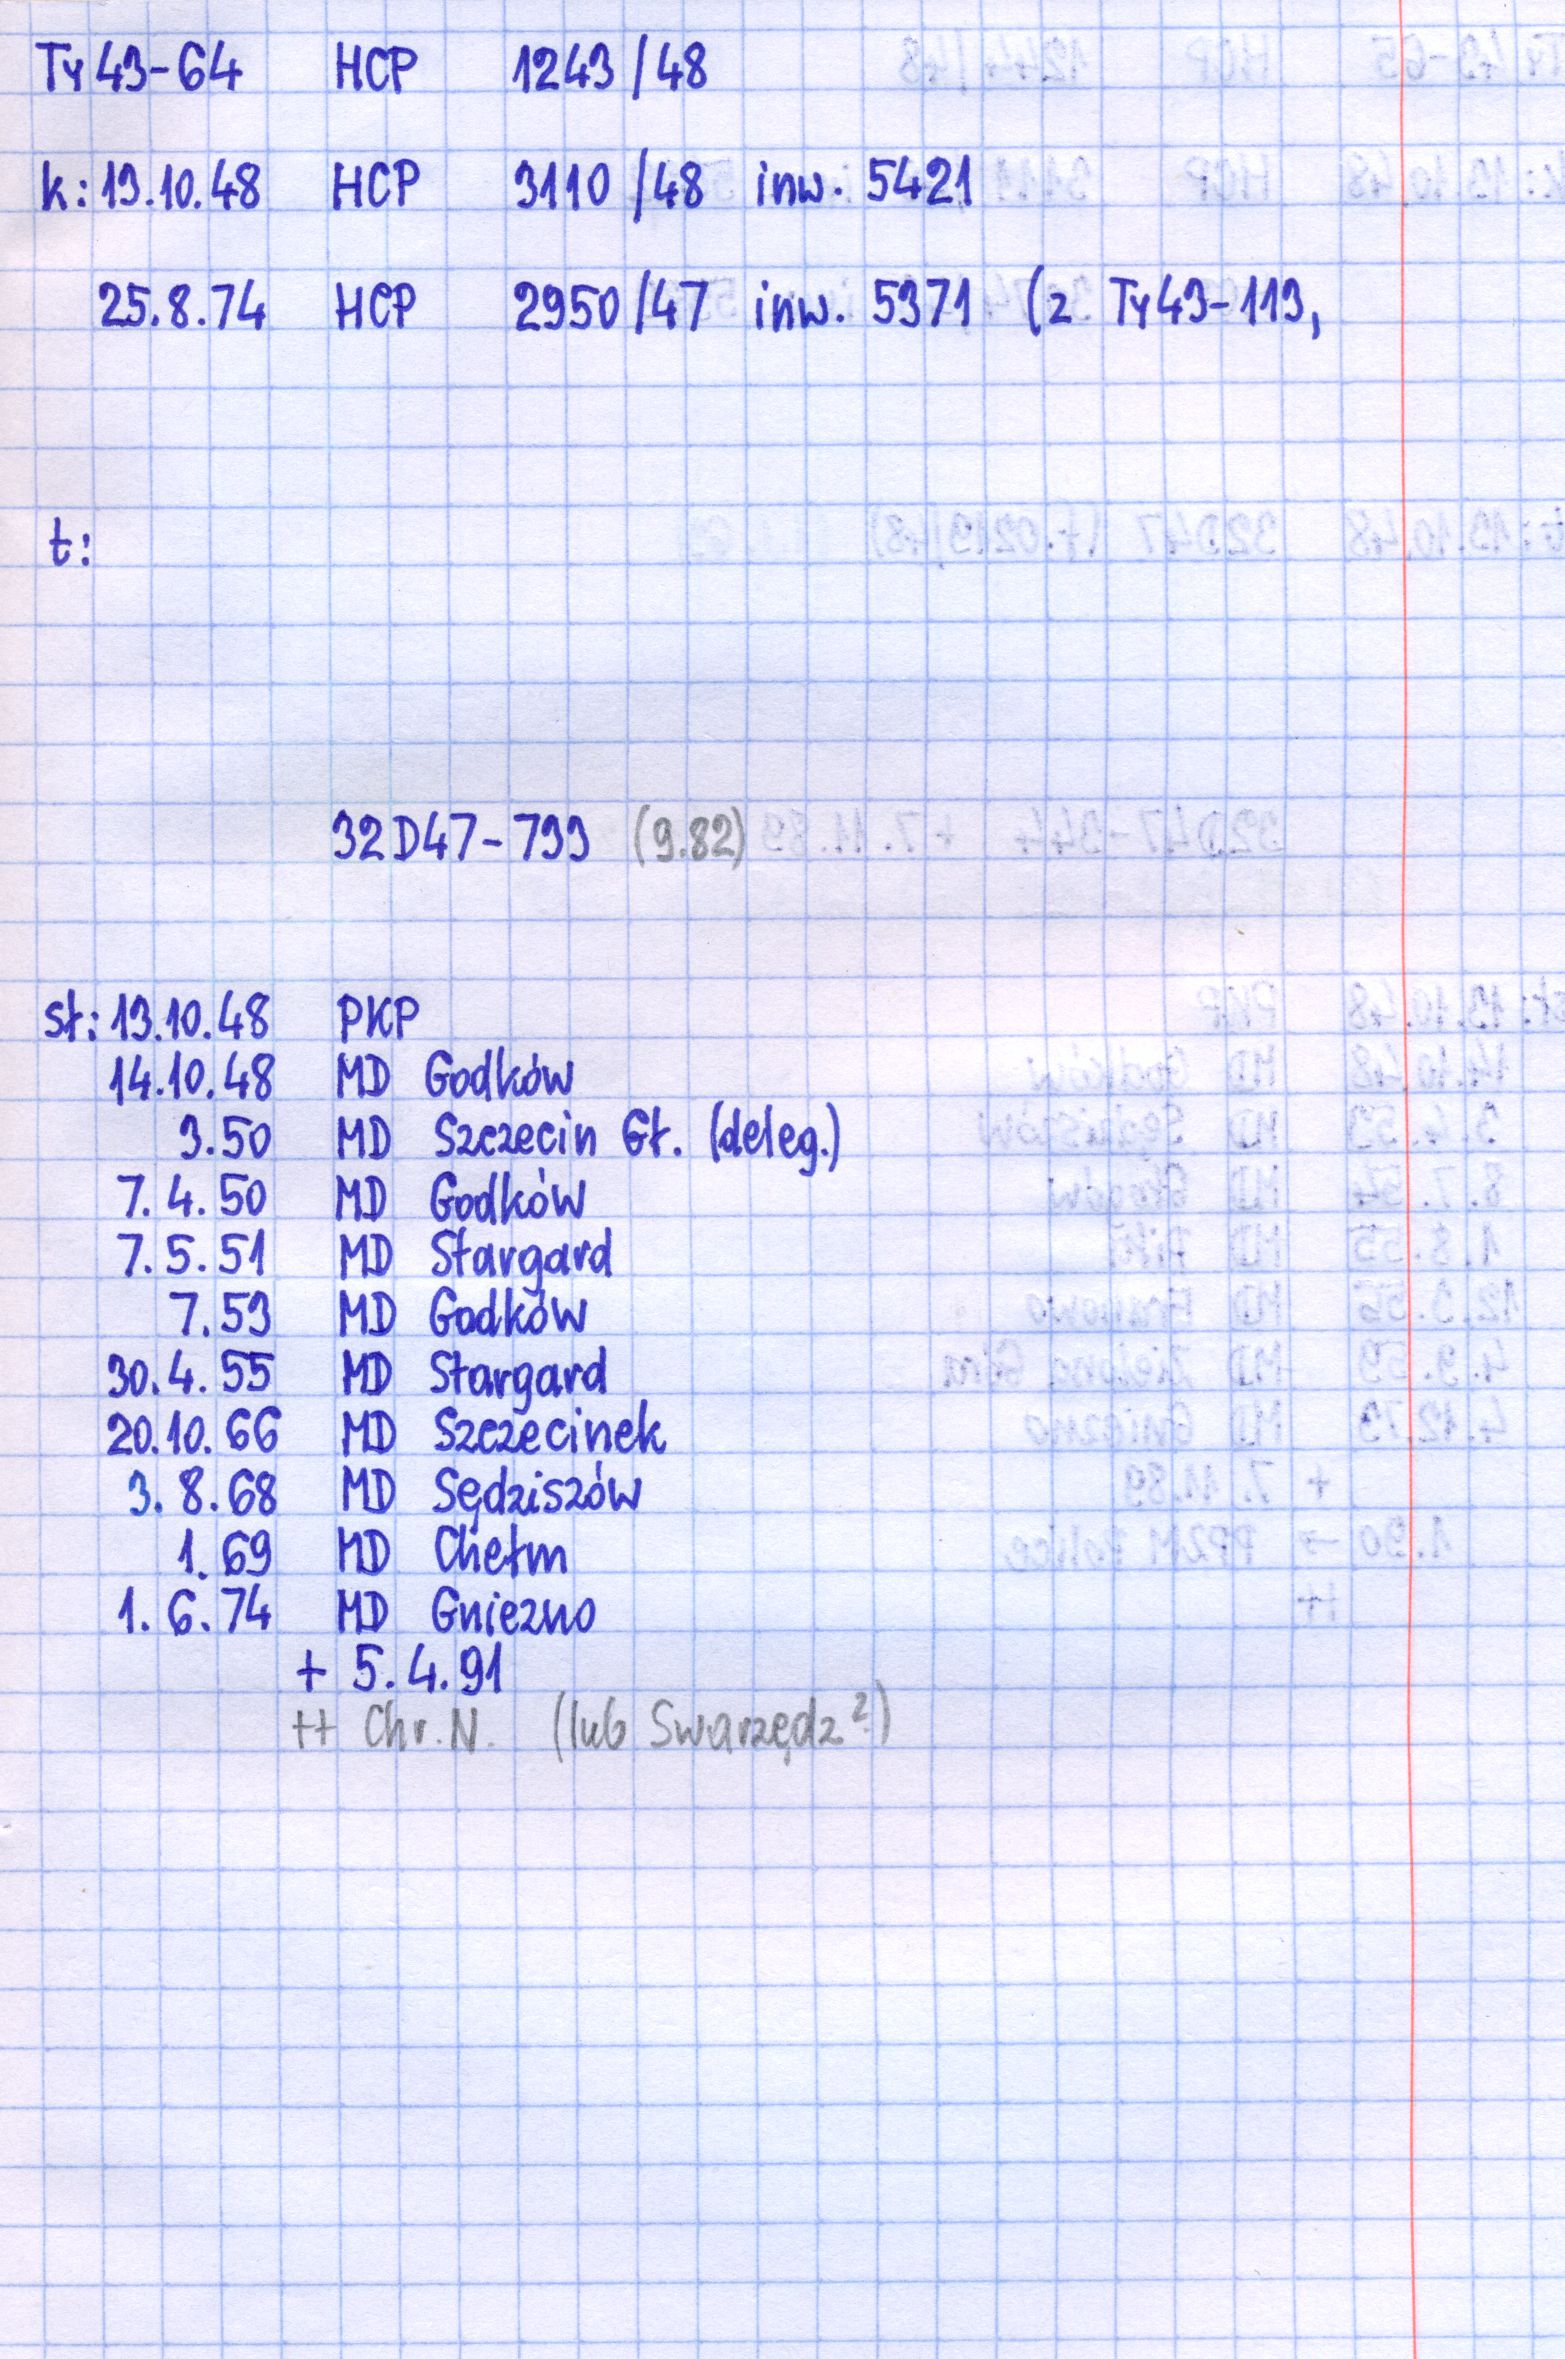 Ty43-64 HCP 1243/48
k: 13.10.48 HCP 3110/48 inw. 5421
25.8.74 HCP 2950/47 inw. 5371 (z Ty43-113,
t:
32D47-793 (9.82)
st: 13.10.48 PKP
14.10.48 MD Godków
3.50 MD Szczecin Gł. (deleg.)
7.4.50 MD Godków
7.5.51 MD Stargard
7.53 MD Godków
30.4.55 MD Stargard
20.10.66 MD Szczecinek
3.8.68 MD Sędziszów
1.69 MD Chełm
1.6.74 MD Gniezno
+ 5.4.91
++ Chr.N. (lub Swarzędz?)